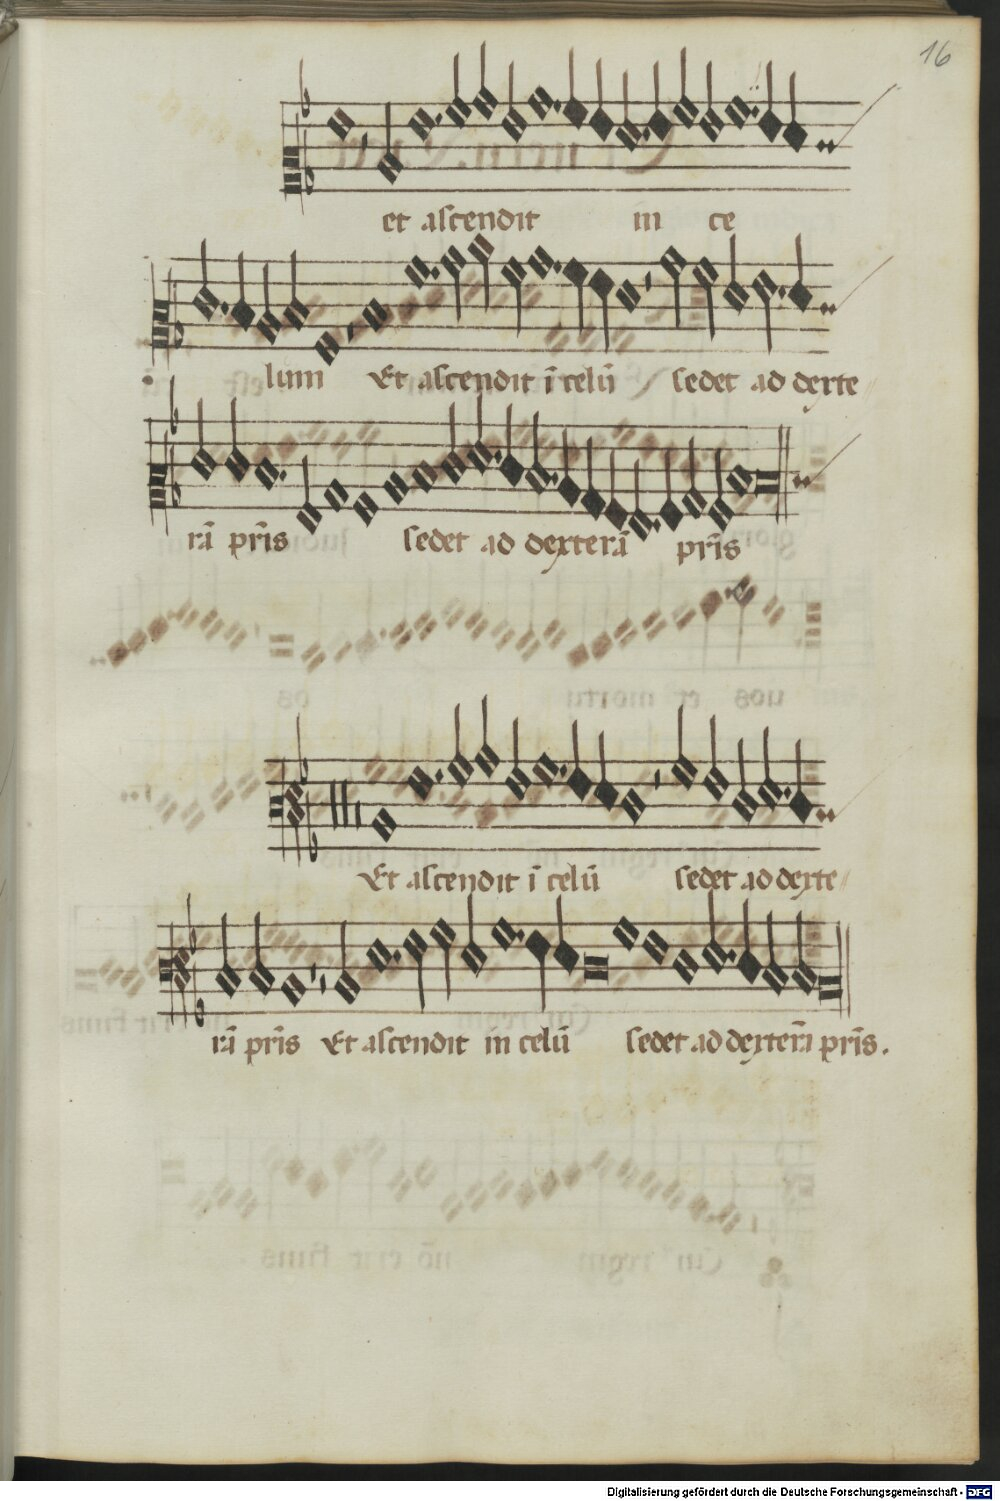 16
et ascendit in ce
lum Et ascendit ī celū sedet ad dexte
rā pr̄is sedet ad dexterā pr̄is
Et ascendit ī celū sedet ad dexte
rā pr̄is Et ascendit in celū sedet ad dexterā pr̄is.
Digitalisierung gefördert durch die Deutsche Forschungsgemeinschaft - DFG